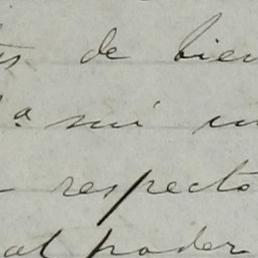 de bien
mi
respecto
al poder